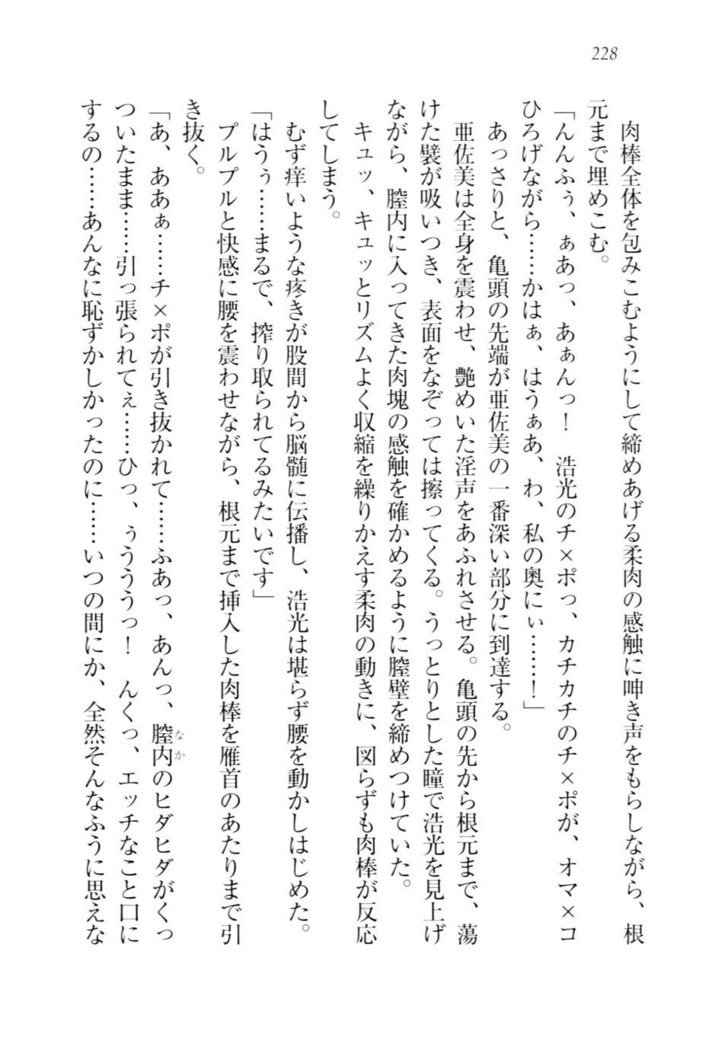 228
肉棒全体を包みこむようにして締めあげる柔肉の感触に呻き声をもらしながら、根
元まで埋めこむ。
「んんふぅ、ぁあっ、あぁんっ！　浩光のチ×ポっ、カチカチのチ×ポが、オマ×コ
ひろげながら……かはぁ、はうぁあ、わ、私の奥にぃ……！」
あっさりと、亀頭の先端が亜佐美の一番深い部分に到達する。
亜佐美は全身を震わせ、艶めいた淫声をあふれさせる。亀頭の先から根元まで、蕩
けた襞が吸いつき、表面をなぞっては擦ってくる。うっとりとした瞳で浩光を見上げ
ながら、膣内に入ってきた肉塊の感触を確かめるように膣壁を締めつけていた。
キュッ、キュッとリズムよく収縮を繰りかえす柔肉の動きに、図らずも肉棒が反応
してしまう。
むず痒いような疼きが股間から脳髄に伝播し、浩光は堪らず腰を動かしはじめた。
「はうぅ……まるで、搾り取られてるみたいです」
プルプルと快感に腰を震わせながら、根元まで挿入した肉棒を雁首のあたりまで引
き抜く。
「あ、ああぁ……チ×ポが引き抜かれて……ふあっ、あんっ、膣内（なか）のヒダヒダがくっ
ついたまま……引っ張られてぇ……ひっ、ぅうううっ！　んくっ、エッチなこと口に
するの……あんなに恥ずかしかったのに……いつの間にか、全然そんなふうに思えな